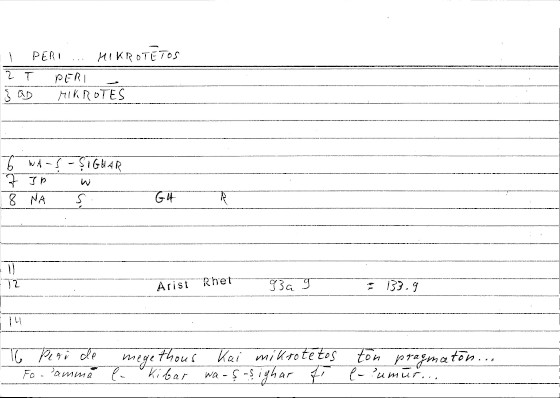 1 PERI ... MIKROTĒTOS
2 T PERI
3 QD MIKROTĒS
6 WA-Ṣ-ṢIGHAR
7 IP W
8 NA Ṣ GH R
11
12 Arist Rhet 93a 9 = 133.9
14
16 Peri de megethous kai mikrotētos tōn pragmatōn...
Fa-'ammā l- kibar wa-ṣ-ṣighar fī l-'umūr...